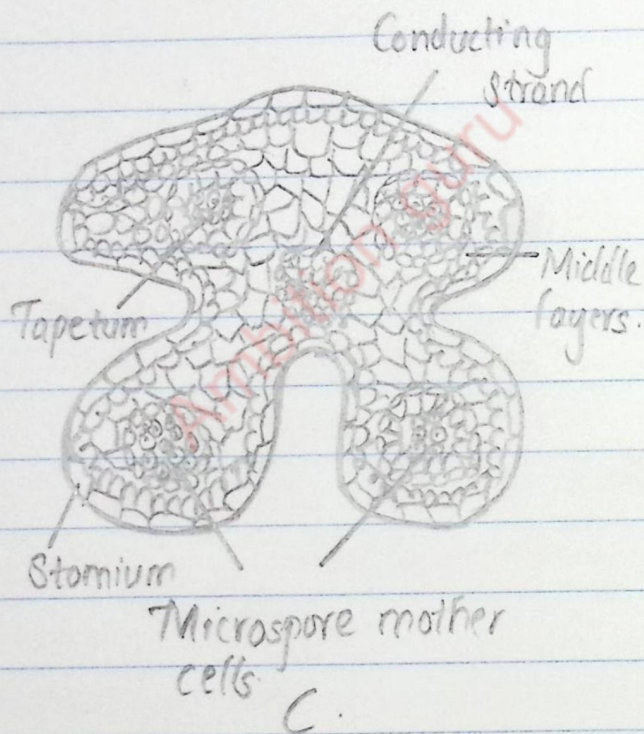 Conducting
Strand
Ambition guru
Middle
layers.
Tapetum
Stomium
Microspore mother
cells.
C.